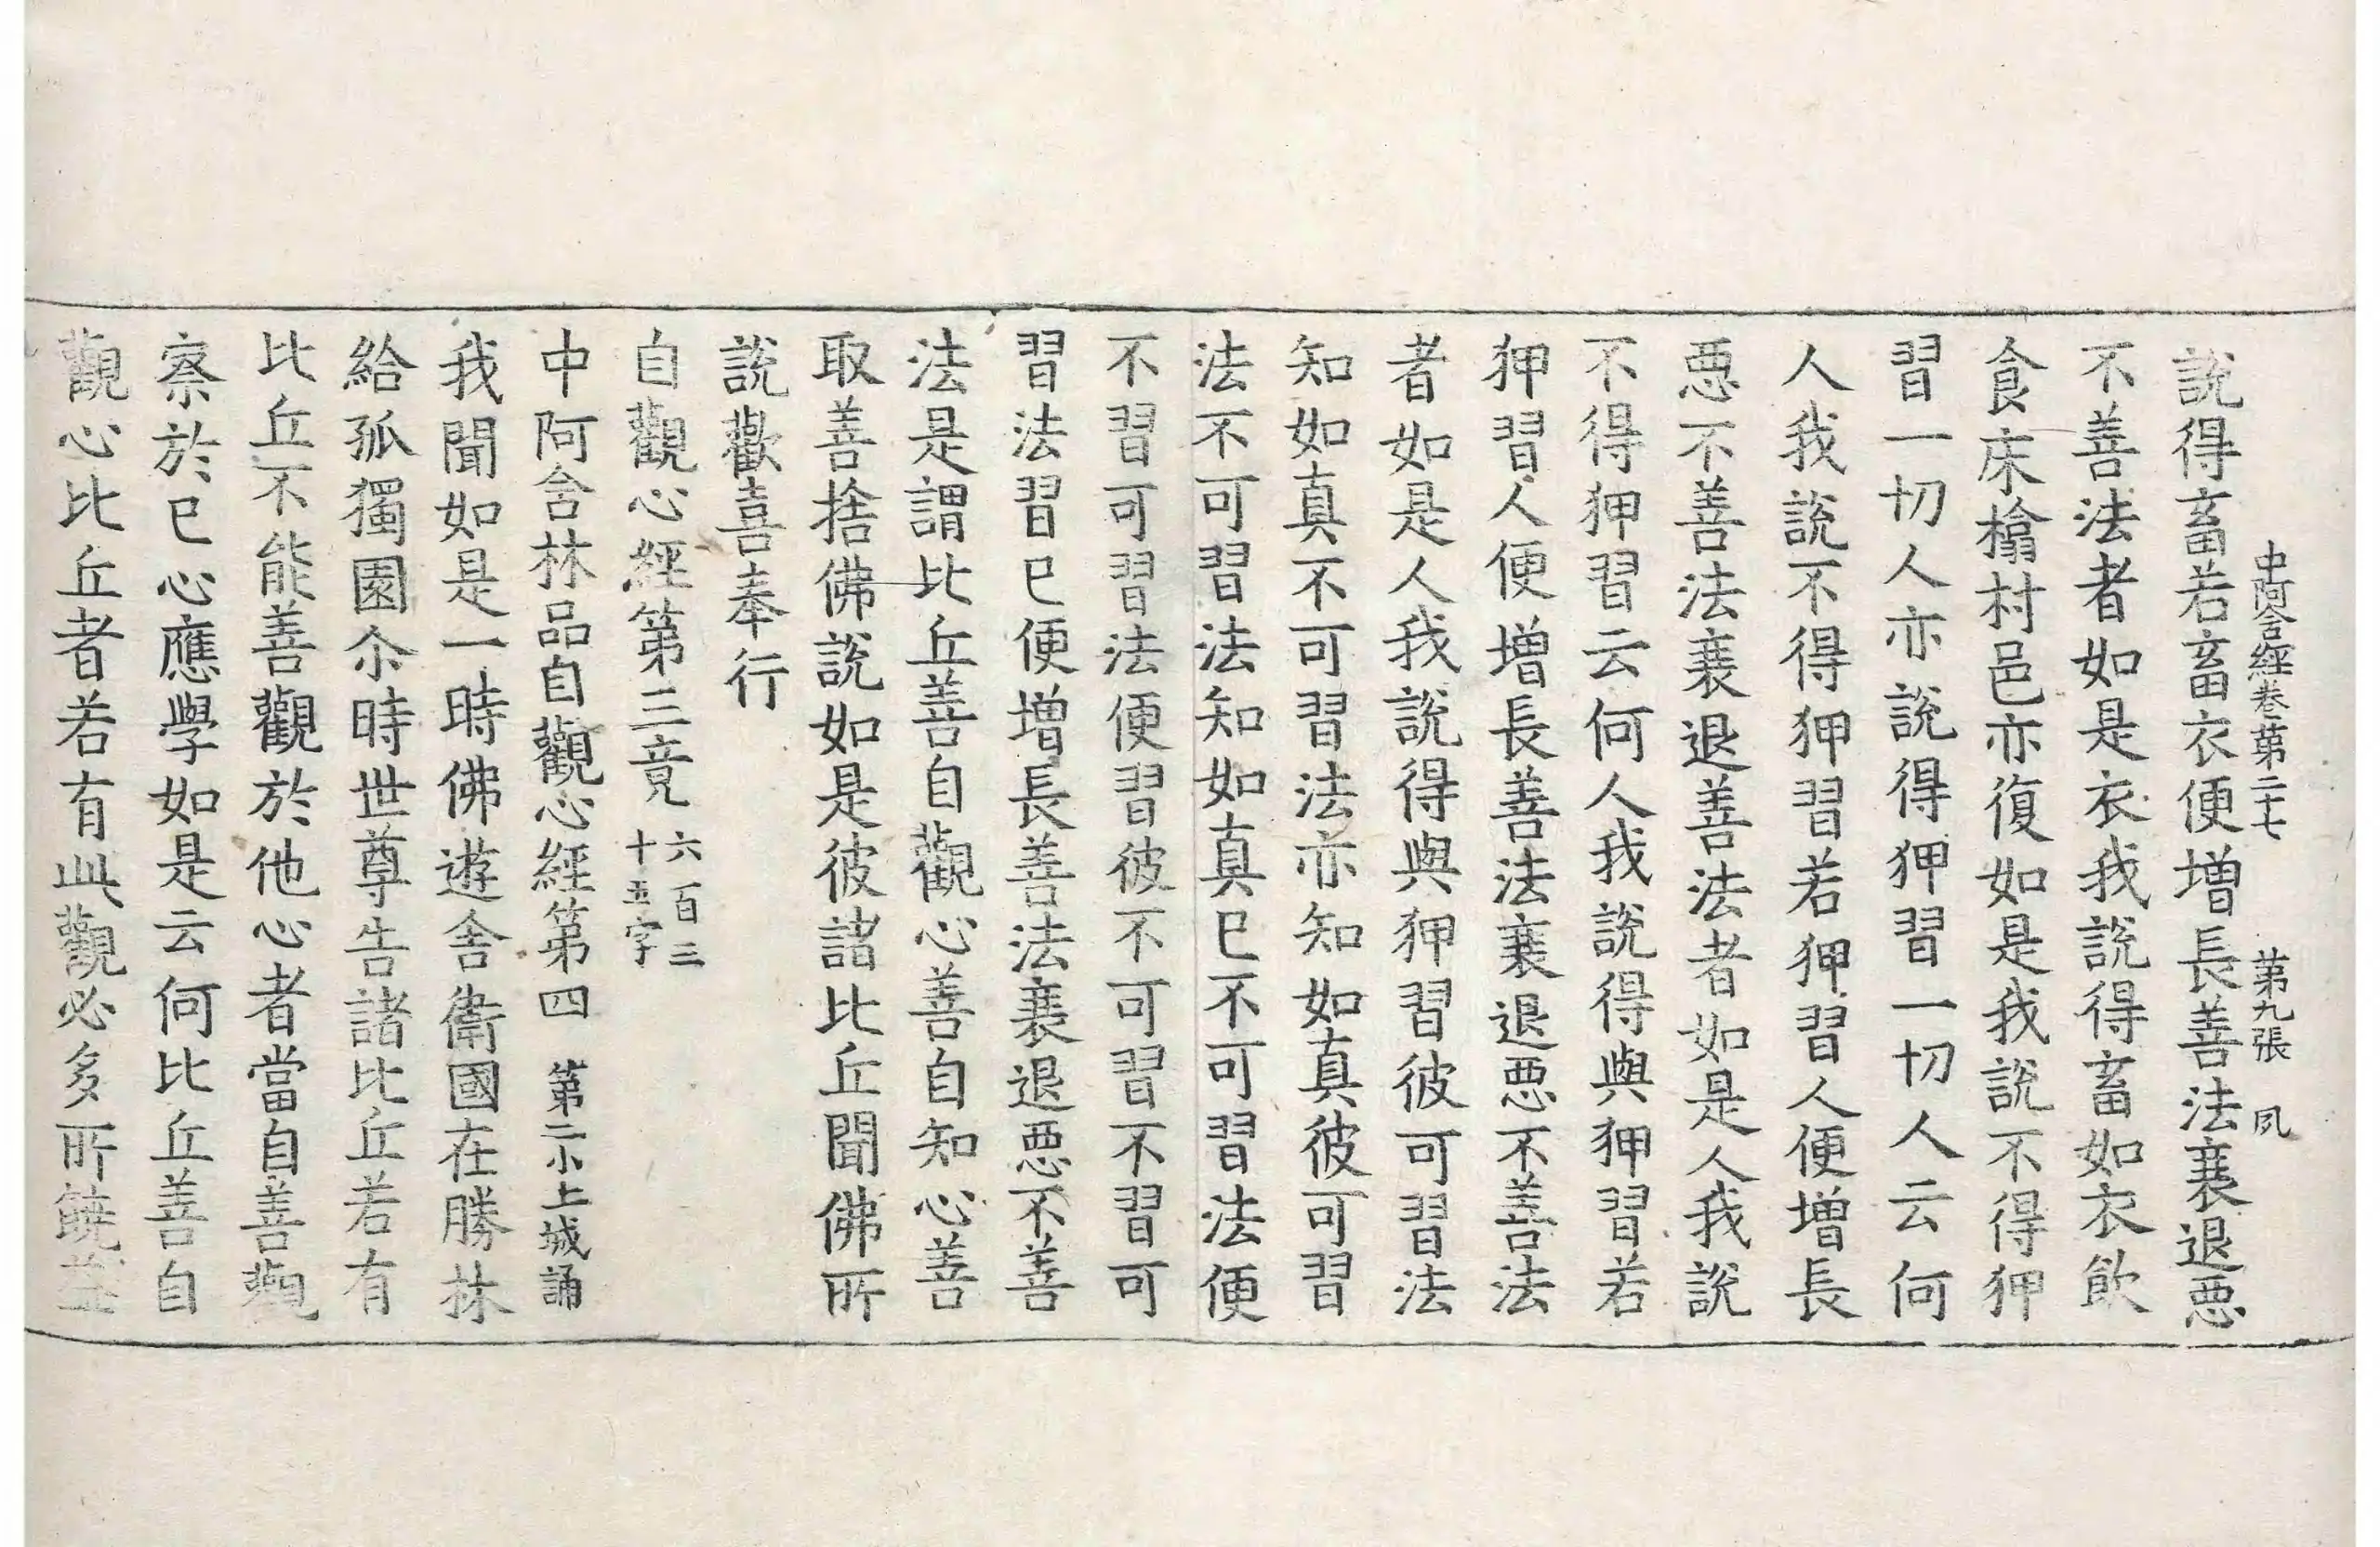 中阿含經卷第二十七　第九張　夙
說得畜若畜衣便增長善法衰退惡
不善法者如是衣我說得畜如衣飲
食床㯓村邑亦復如是我說不得狎
習一切人亦說得狎習一切人云何
人我說不得狎習若狎習人便增長
惡不善法衰退善法者如是人我說
不得狎習云何人我說得與狎習若
狎習人便增長善法衰退惡不善法
者如是人我說得與狎習彼可習法
知如真不可習法亦知如真彼可習
法不可習法知如真已不可習法便
不習可習法便習彼不可習不習可
習法習已便增長善法衰退惡不善
法是謂比丘善自觀心善自知心善
取善捨佛說如是彼諸比丘聞佛所
說歡喜奉行
自觀心經第三竟六百三十五字
中阿含林品自觀心經第四　第二小土城誦
我聞如是一時佛遊舍衛國在勝林
給孤獨園尒時世尊告諸比丘若有
比丘不能善觀於他心者當自善觀
察於已心應學如是云何比丘善自
觀心比丘者若有此觀必多所饒益